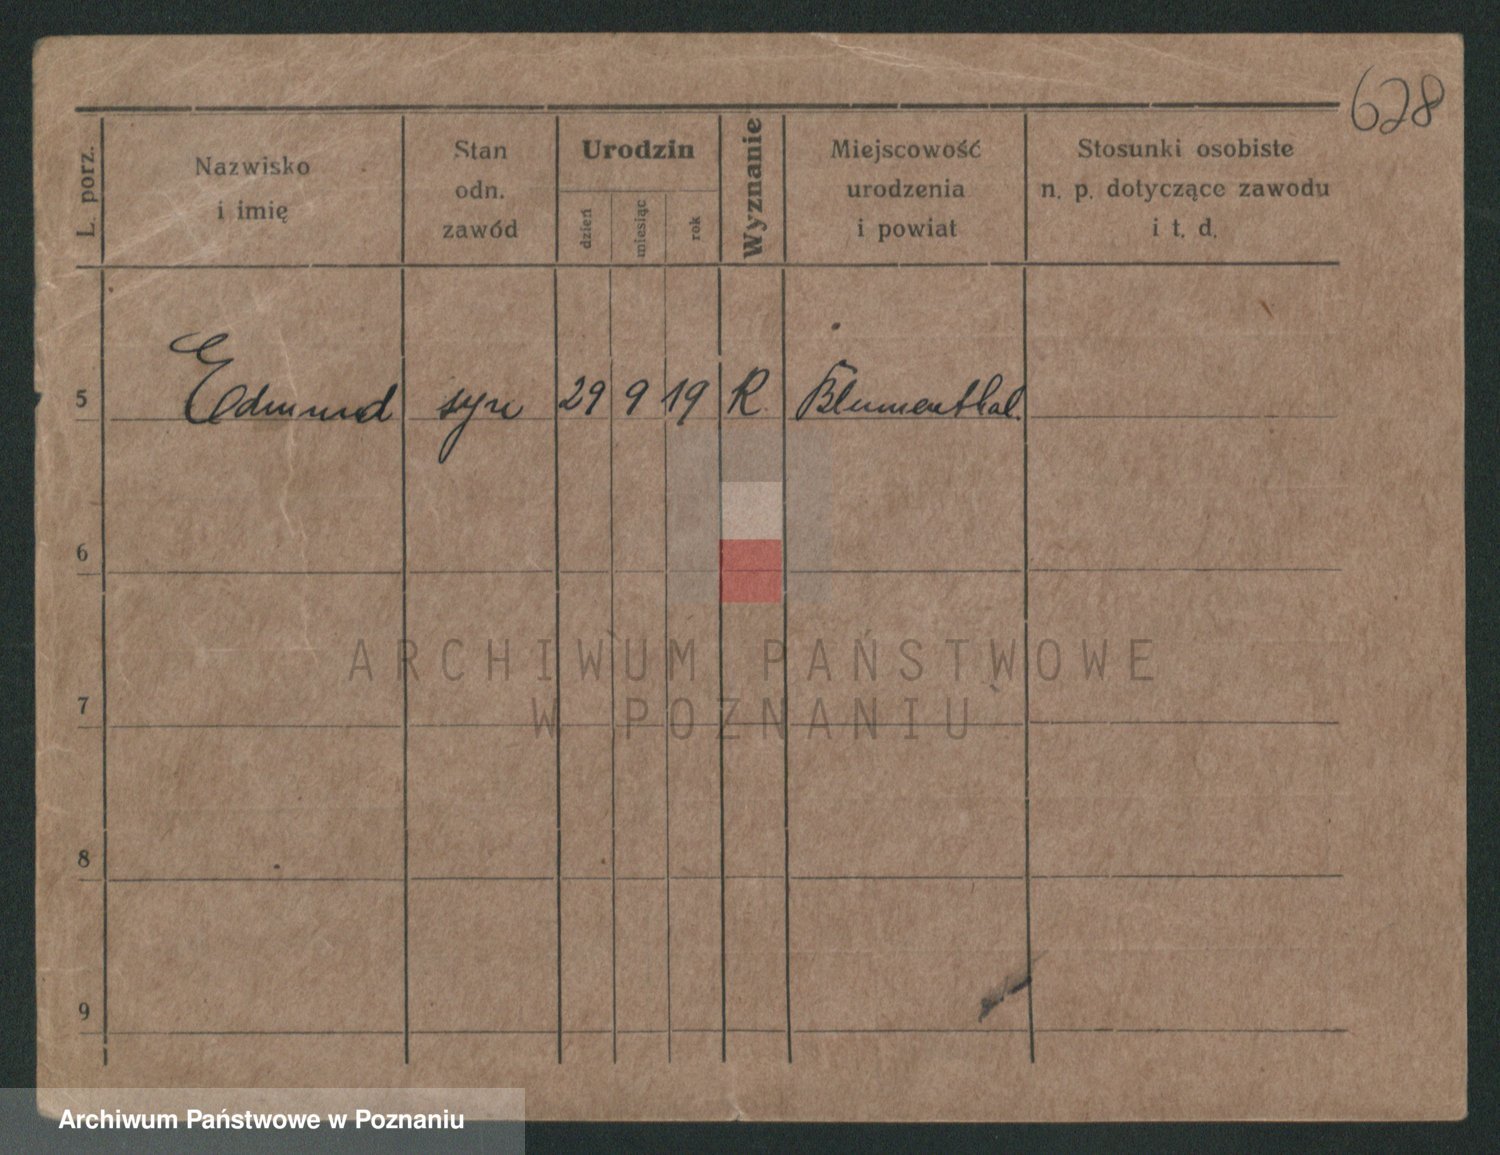 628
L. porz.
Nazwisko
i imię
Stan
odn.
zawód
Urodzin
dzień
miesiąc
rok
Wyznanie
Miejscowość
urodzenia
i powiat
Stosunki osobiste
n. p. dotyczące zawodu
i t. d.
5 Edmund syn 29 9 19 R. Blumenthal.
6
7
8
9
ARCHIWUM PAŃSTWOWE
W POZNANIU
Archiwum Państwowe w Poznaniu